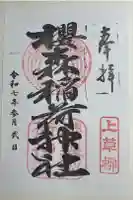 奉拝
櫻森稲荷神社
令和七年参月弐日
上草柳